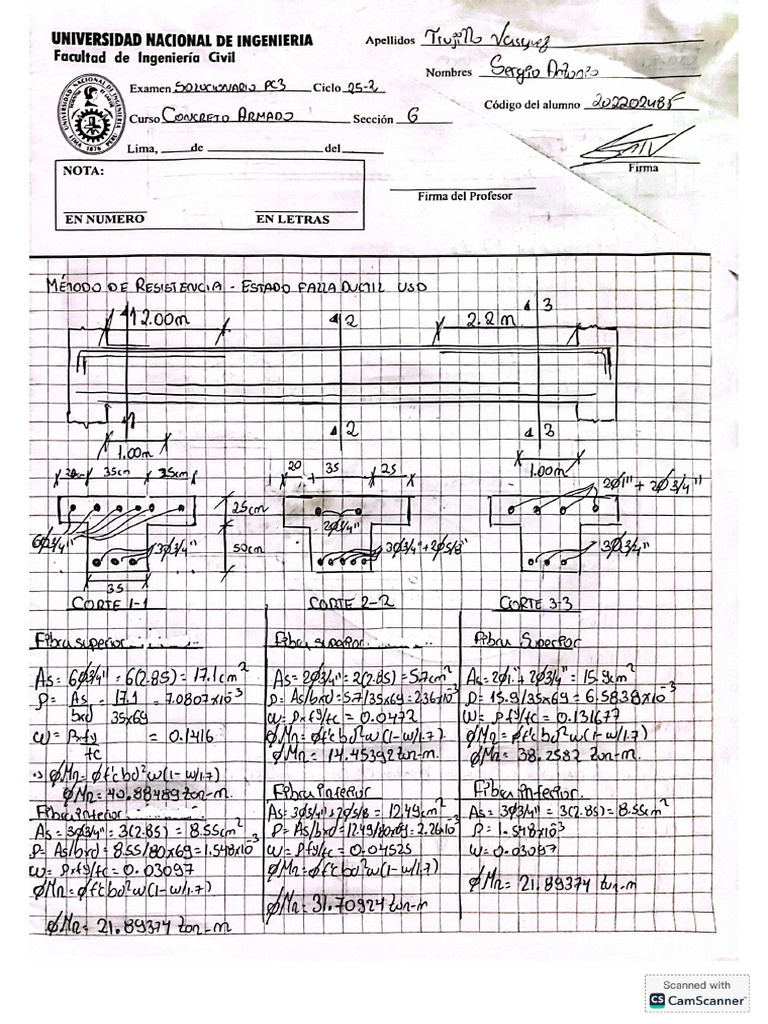 UNIVERSIDAD NACIONAL DE INGENIERIA
Facultad de Ingeniería Civil
Apellidos Trujillo Vasquez
Nombres Sergio Antonio
Examen SOLUCIONARIO PC3 Ciclo 25-2
Código del alumno 20220248F
Curso CONCRETO ARMADO Sección G
Lima, de del
Firma
NOTA:
EN NUMERO EN LETRAS
Firma del Profesor
MÉTODO DE RESISTENCIA - ESTADO FALLA DUCTIL USD
1 2.00m 2 2.2m 3
1 2 3
1.00m 1.00m
20 35cm 25cm
20 35 25
2Ø1" + 2Ø3/4"
25cm
50cm
6Ø3/4"
3Ø3/4"
35
2Ø3/4"
3Ø3/4"+2Ø5/8"
3Ø3/4"
CORTE 1-1 CORTE 2-2 CORTE 3-3
Fibra superior
As= 6Ø3/4" = 6(2.85) = 17.1cm²
ρ= As/bxd = 17.1/35x69 = 7.0807x10⁻³
w= ρxfy/f'c = 0.1416
∴ ØMn= Øf'cbd²w(1-w/1.7)
ØMn= 40.88489 ton-m.
Fibra inferior
As= 3Ø3/4" = 3(2.85) = 8.55cm²
ρ= As/bxd = 8.55/80x69 = 1.548x10⁻³
w= ρxfy/f'c = 0.03097
ØMn= Øf'cbd²w(1-w/1.7)
ØMn= 21.89374 ton-m
Fibra superior
As= 2Ø3/4" = 2(2.85) = 5.7cm²
ρ= As/bxd = 5.7/35x69 = 2.36x10⁻³
w= ρxfy/f'c = 0.0472
ØMn= Øf'cbd²w(1-w/1.7)
ØMn= 14.45392 ton-m.
Fibra inferior
As= 3Ø3/4"+2Ø5/8 = 12.49cm²
ρ= As/bxd = 12.49/80x69 = 2.26x10⁻³
w= ρfy/f'c = 0.04525
ØMn= Øf'cbd²w(1-w/1.7)
ØMn= 31.70924 ton-m
Fibra Superior
As= 2Ø1" + 2Ø3/4" = 15.9cm²
ρ= 15.9/35x69 = 6.5838x10⁻³
w= ρxfy/f'c = 0.131677
ØMn= Øf'cbd²w(1-w/1.7)
ØMn= 38.2582 ton-m.
Fibra Inferior.
As= 3Ø3/4" = 3(2.85) = 8.55cm²
ρ= 1.548x10⁻³
w= 0.03097
ØMn= 21.89374 ton-m
Scanned with
CS CamScanner